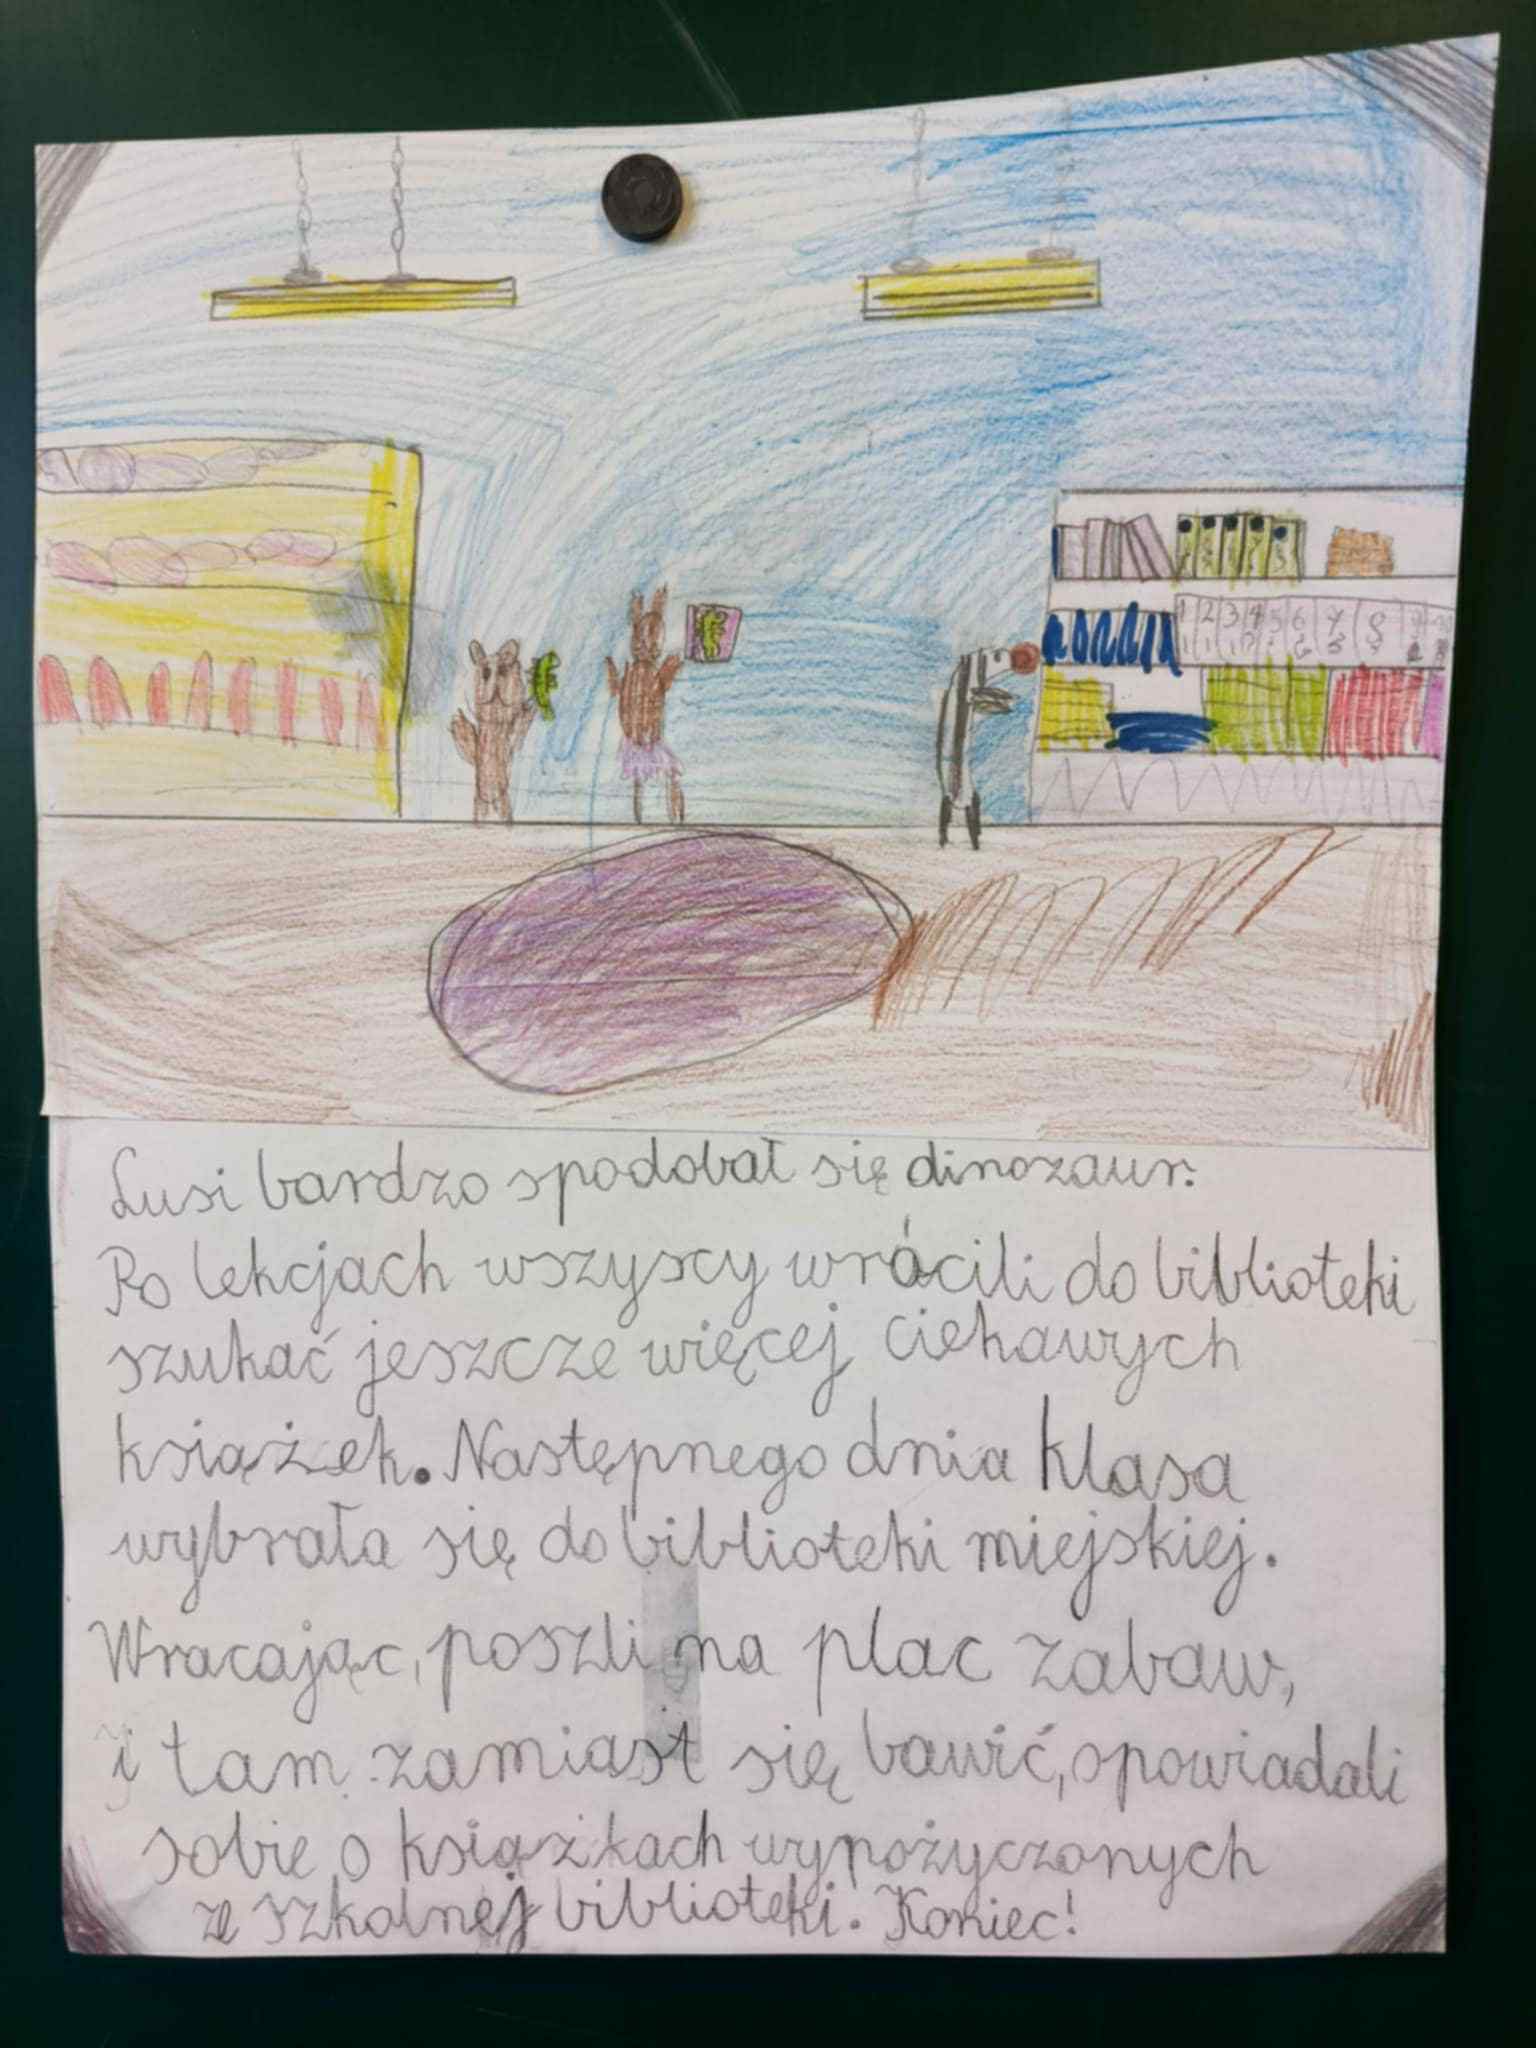 1 2 3 4 5 6 7 8
Lusi bardzo spodobał się dinozaur.
Po lekcjach wszyscy wrócili do biblioteki
szukać jeszcze więcej ciekawych
książek. Następnego dnia klasa
wybrała się do biblioteki miejskiej.
Wracając, poszli na plac zabaw,
i tam zamiast się bawić, opowiadali
sobie o książkach wypożyczonych
ze szkolnej biblioteki. Koniec!